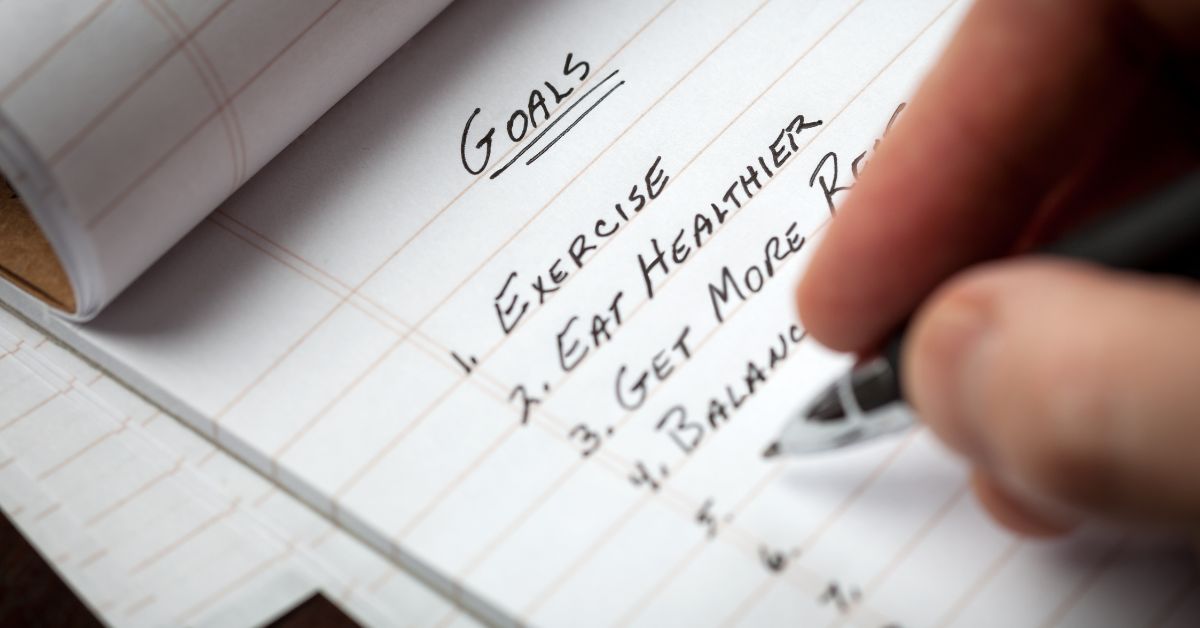 GOALS
1. EXERCISE
2. EAT HEALTHIER
3. GET MORE
4.
5.
6.
7.